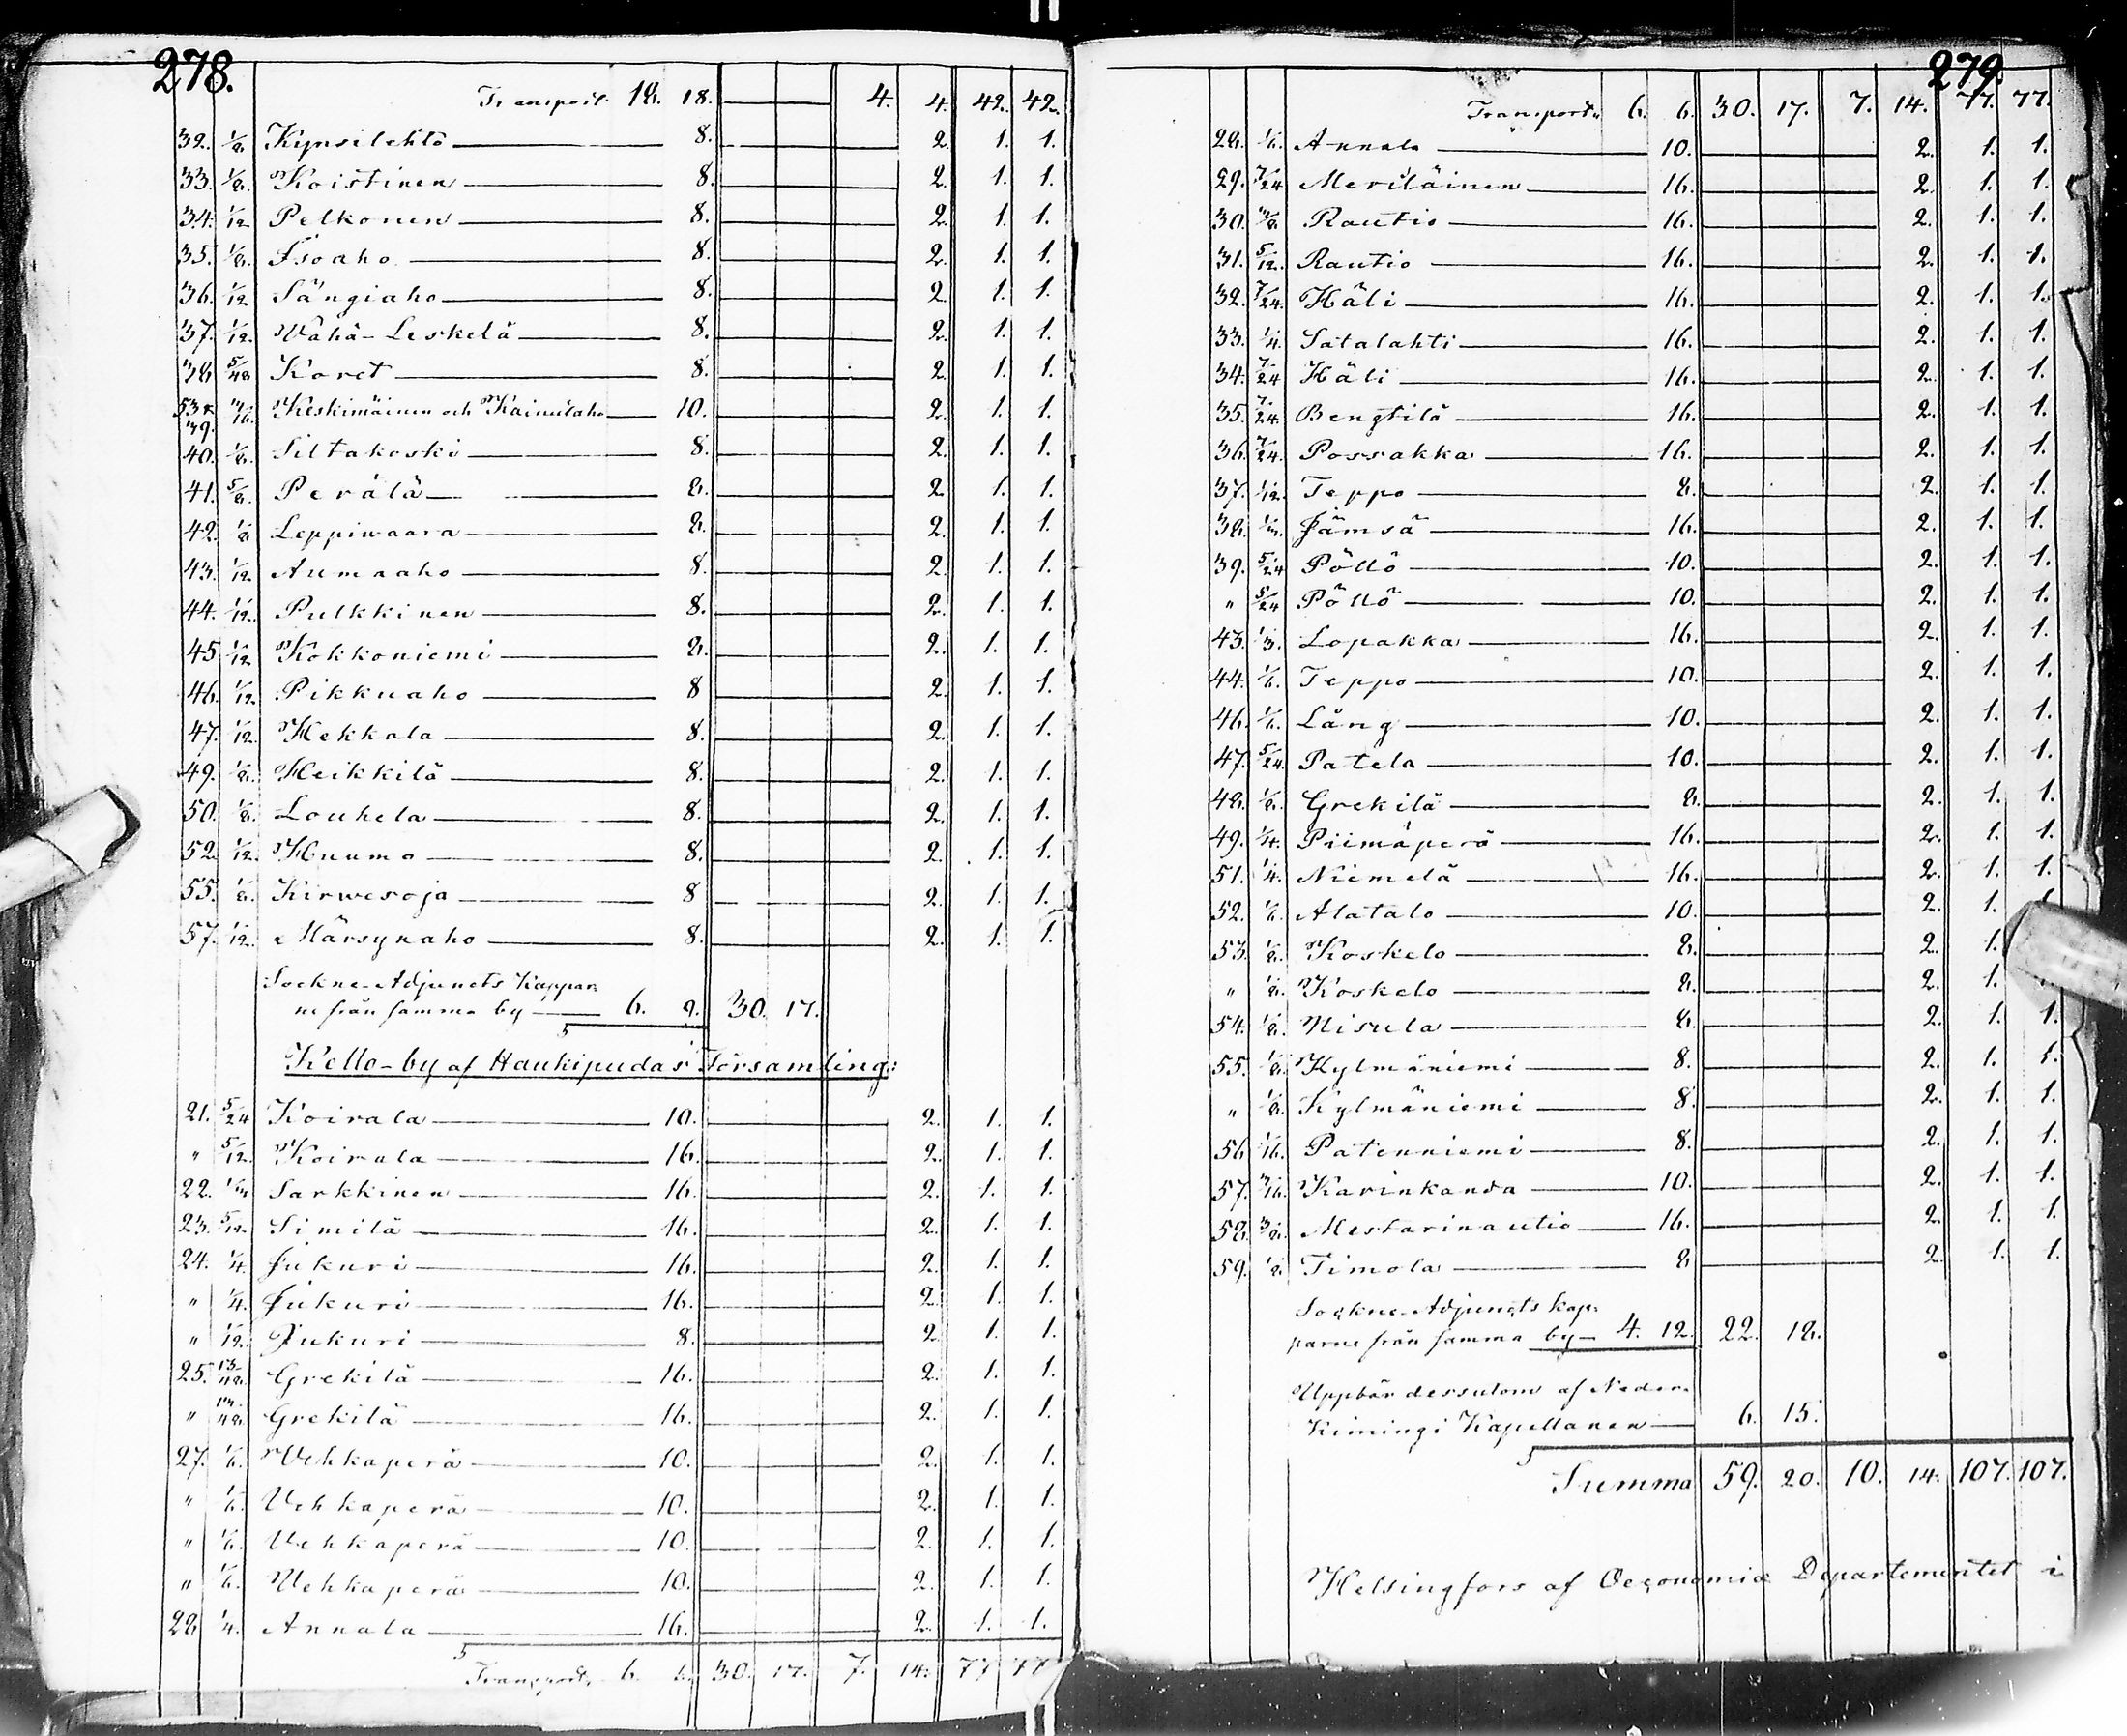 278.
Transport. 18. 18. 4. 4. 42. 42.
32. 1/8. Kynsilehto 8. 2. 1. 1.
33. 1/8. Koistinen 8. 2. 1. 1.
34. 1/12 Pelkonen 8. 2. 1. 1.
35. 1/8. Isoaho 8. 2. 1. 1.
36. 1/12 Sängiaho 8. 2. 1. 1.
37. 1/12. Wähä-Leskelä 8. 2. 1. 1.
38 5/48 Koret 8. 2. 1. 1.
53 & 39. 3/16. Keskimäinen och Kainulaho 10. 2. 1. 1.
40. Siltakoski 8. 2. 1. 1.
41. 5/8. Perälä 8. 2. 1. 1.
42. 1/8 Leppiwaara 8. 2. 1. 1.
43. 1/12 Aumaaho 8. 2. 1. 1.
44. 1/12. Pulkkinen 8. 2. 1. 1.
45 1/12 Kokkoniemi 8. 2. 1. 1.
46. 1/12. Pikkuaho 8 2. 1. 1.
47. 1/12. Hekkala 8. 2. 1. 1.
49. 1/8. Heikkilä 8. 2. 1. 1.
50. 1/8. Louhela 8. 2. 1. 1.
52. 1/12. Huumo 8. 2. 1. 1.
55. 1/8. Kirwesoja 8 2. 1. 1.
57. 1/12. Märsynaho 8. 2. 1. 1.
Sockne-Adjuncts Kappar-
ne från samma by 6. 2. 30. 17.
Kello-by af Haukipudas Församling:
21. 5/24 Koirala 10. 2. 1. 1.
" 5/12. Koirala 16. 2. 1. 1.
22. Sarkkinen 16. 2. 1. 1.
23. 5/12. Similä 16. 2. 1. 1.
24. 1/4. Jukuri 16. 2. 1. 1.
" 1/4. Jukuri 16. 2. 1. 1.
" 1/12. Jukuri 8. 2. 1. 1.
25. 13/48. Grekilä 16. 2. 1. 1.
" Grekilä 16. 2. 1. 1.
27. 1/6. Vehkaperä 10. 2. 1. 1.
" 1/6. Vehkaperä 10. 2. 1. 1.
" 1/6. Vehkaperä 10. 2. 1. 1.
" 1/6. Vehkaperä 10. 2. 1. 1.
28 1/4. Annala 16. 2. 1. 1.
Transport. 6. 6. 30. 17. 7. 14. 77 77
279.
Transport. 6. 6. 30. 17. 7. 14. 77. 77.
28. 1/6. Annala 10. 2. 1. 1.
29. 7/24 Meriläinen 16. 2. 1. 1.
30. 3/8 Rautio 16. 2. 1. 1.
31. 5/12. Rautio 16. 2. 1. 1.
32. 7/24. Häli 16. 2. 1. 1.
33. 1/4. Satalahti 16. 2. 1. 1.
34. 7/24 Häli 16. 2. 1. 1.
35. 7/24. Bengtilä 16. 2. 1. 1.
36. 7/24. Possakka 16. 2. 1. 1.
37. 1/12. Teppo 8. 2. 1. 1.
38. Jämsä 16. 2. 1. 1.
39. 5/24 Pöllö 10. 2. 1. 1.
" 5/24 Pöllö 10. 2. 1. 1.
43. 1/3. Lopakka 16. 2. 1. 1.
44. 1/6. Teppo 10. 2. 1. 1.
46. 1/6. Lång 10. 2. 1. 1.
47. 5/24. Patela 10. 2. 1. 1.
48. 1/8. Grekilä 8. 2. 1. 1.
49. 1/4. Piimäperä 16. 2. 1. 1.
51. 1/4. Niemelä 16. 2. 1. 1.
52. 1/6. Alatalo 10. 2. 1.
53. 1/8. Koskelo 8. 2. 1.
" 1/8. Koskelo 8. 2. 1.
54. 1/8. Nisula 8. 2. 1. 1.
55. 1/8. Kylmäniemi 8. 2. 1. 1.
" 1/8. Kylmäniemi 8. 2. 1. 1.
56 1/16. Patenniemi 8. 2. 1. 1.
57. 3/16. Karinkanda 10. 2. 1. 1.
58. 3/8. Mestarinautio 16. 2. 1. 1.
59. 1/8. Timola 8 2. 1. 1.
Sockne-Adjuncts kap-
parne från samma by 4. 12. 22. 18.
Uppbär dessutom af Neder-
Kimingi Kapellanen 6. 15.
Summa 59. 20. 10. 14. 107. 107.
Helsingfors af Oeconomiæ Departementet i